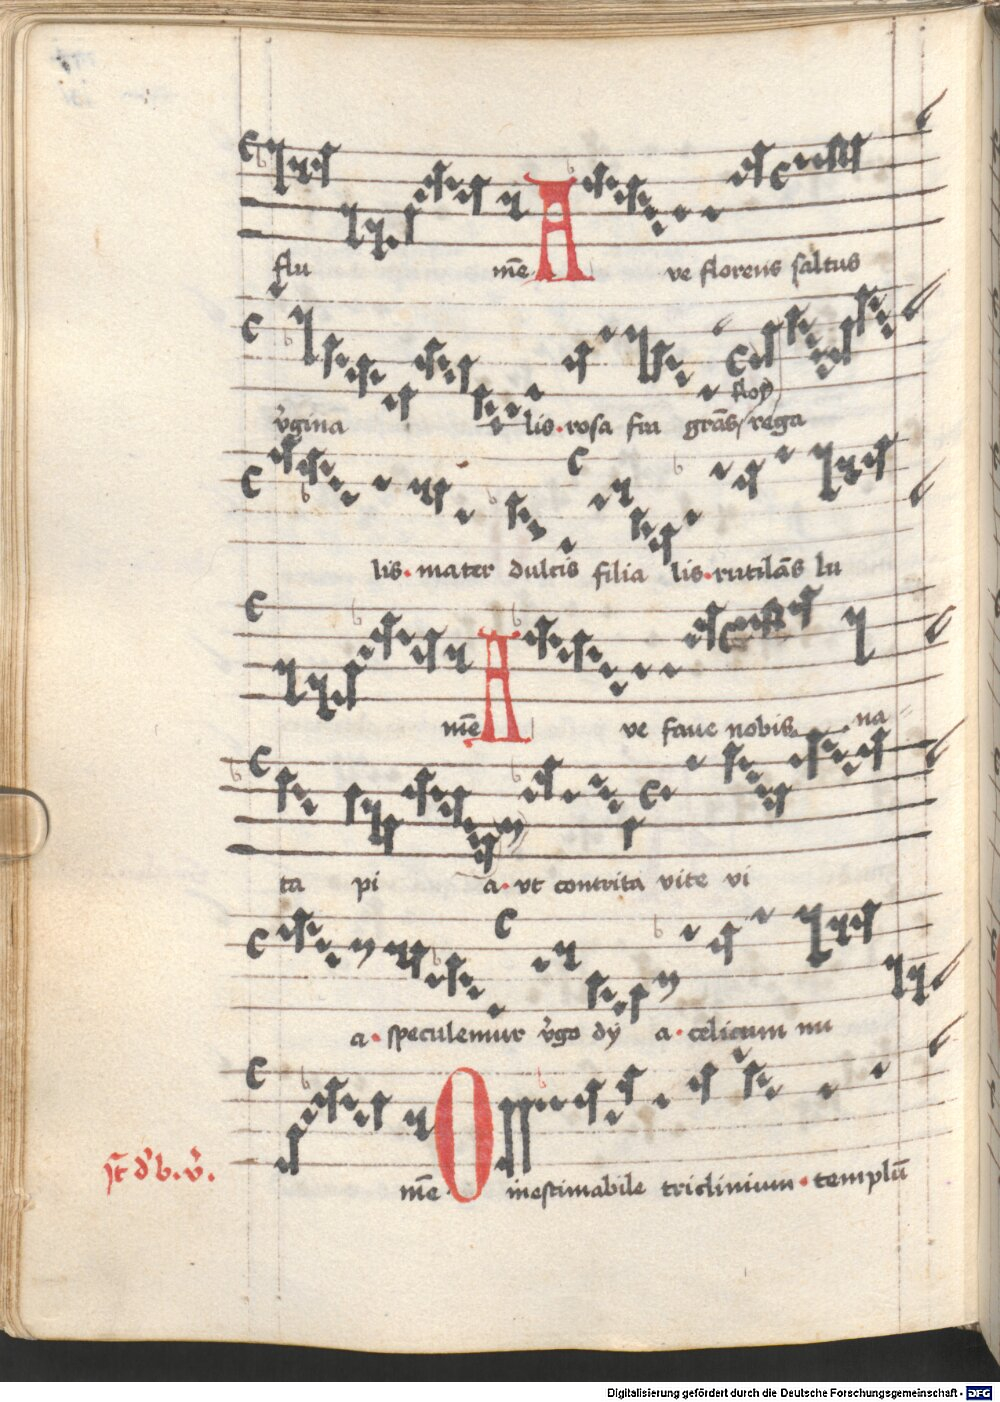 flu mē Ave florens saltus
v̄gina lis · rosa fra grās / rega
flor̄
lis · mater dulcis filia lis · rutilās lu
mē Ave faue nobis na
ta pi a · vt contrita vite vi
a · speculemur v̄go dy a · celicum nu
mē O inestimabile triclinium · templū
Digitalisierung gefördert durch die Deutsche Forschungsgemeinschaft - DFG